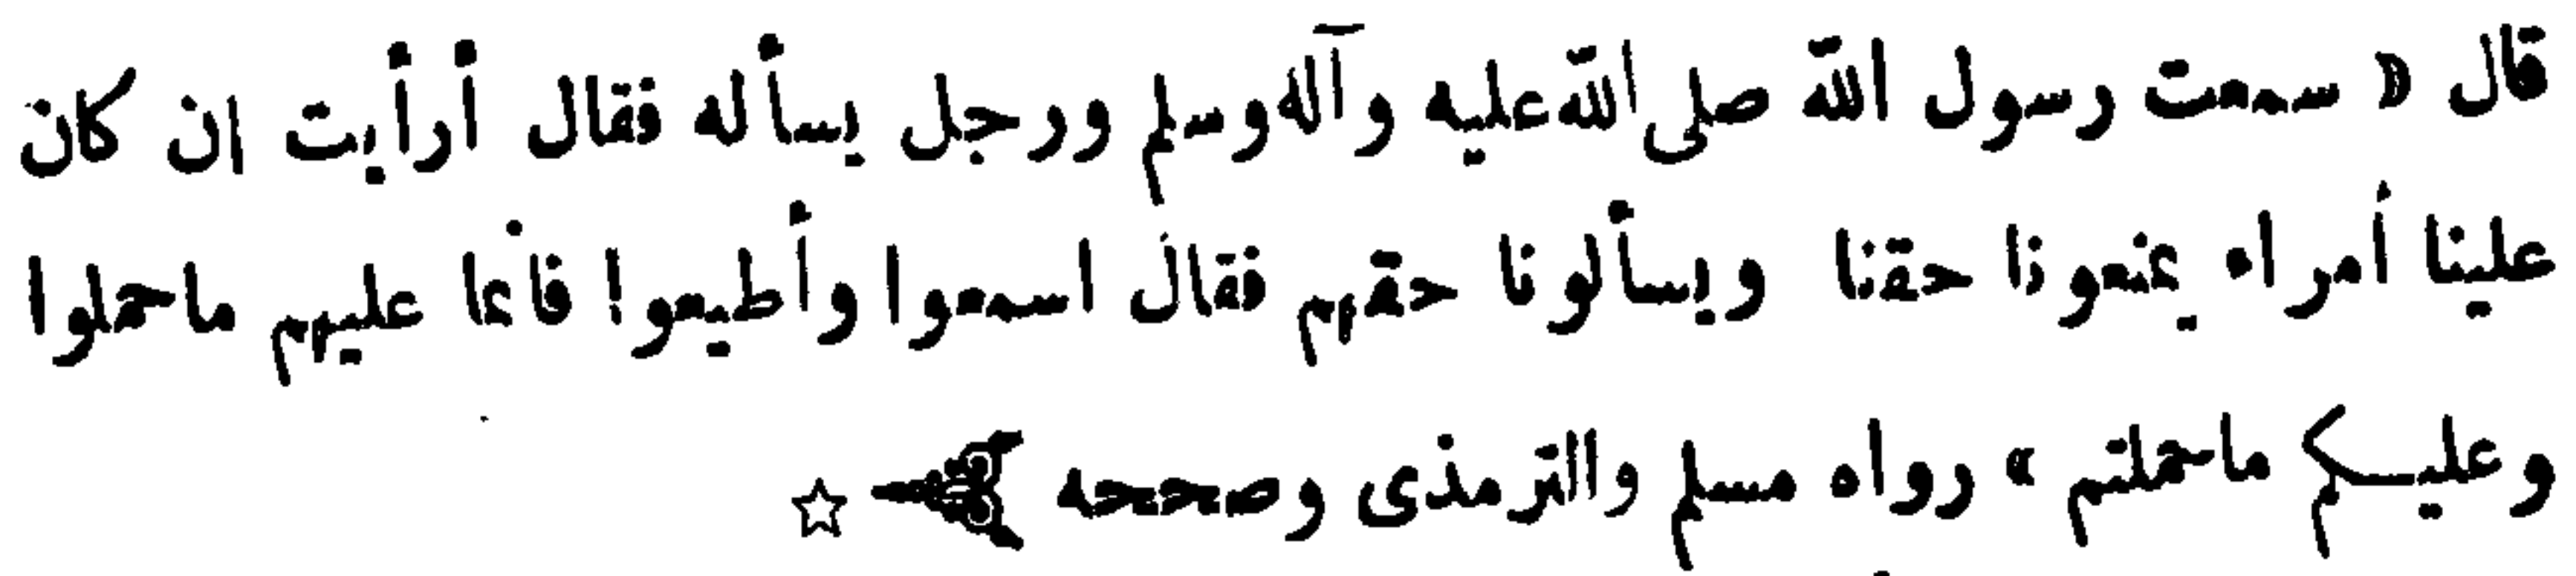 قال « سمعت رسول اللّه صلى اللّه عليه وآله وسلم ورجل يسأله فقال أرأيت ان كان
علينا أمراء يمنعونا حقنا ويسألونا حقهم فقال اسمعوا وأطيعوا فانما عليهم ماحملوا
وعليكم ماحملتم » رواه مسلم والترمذى وصححه ☆